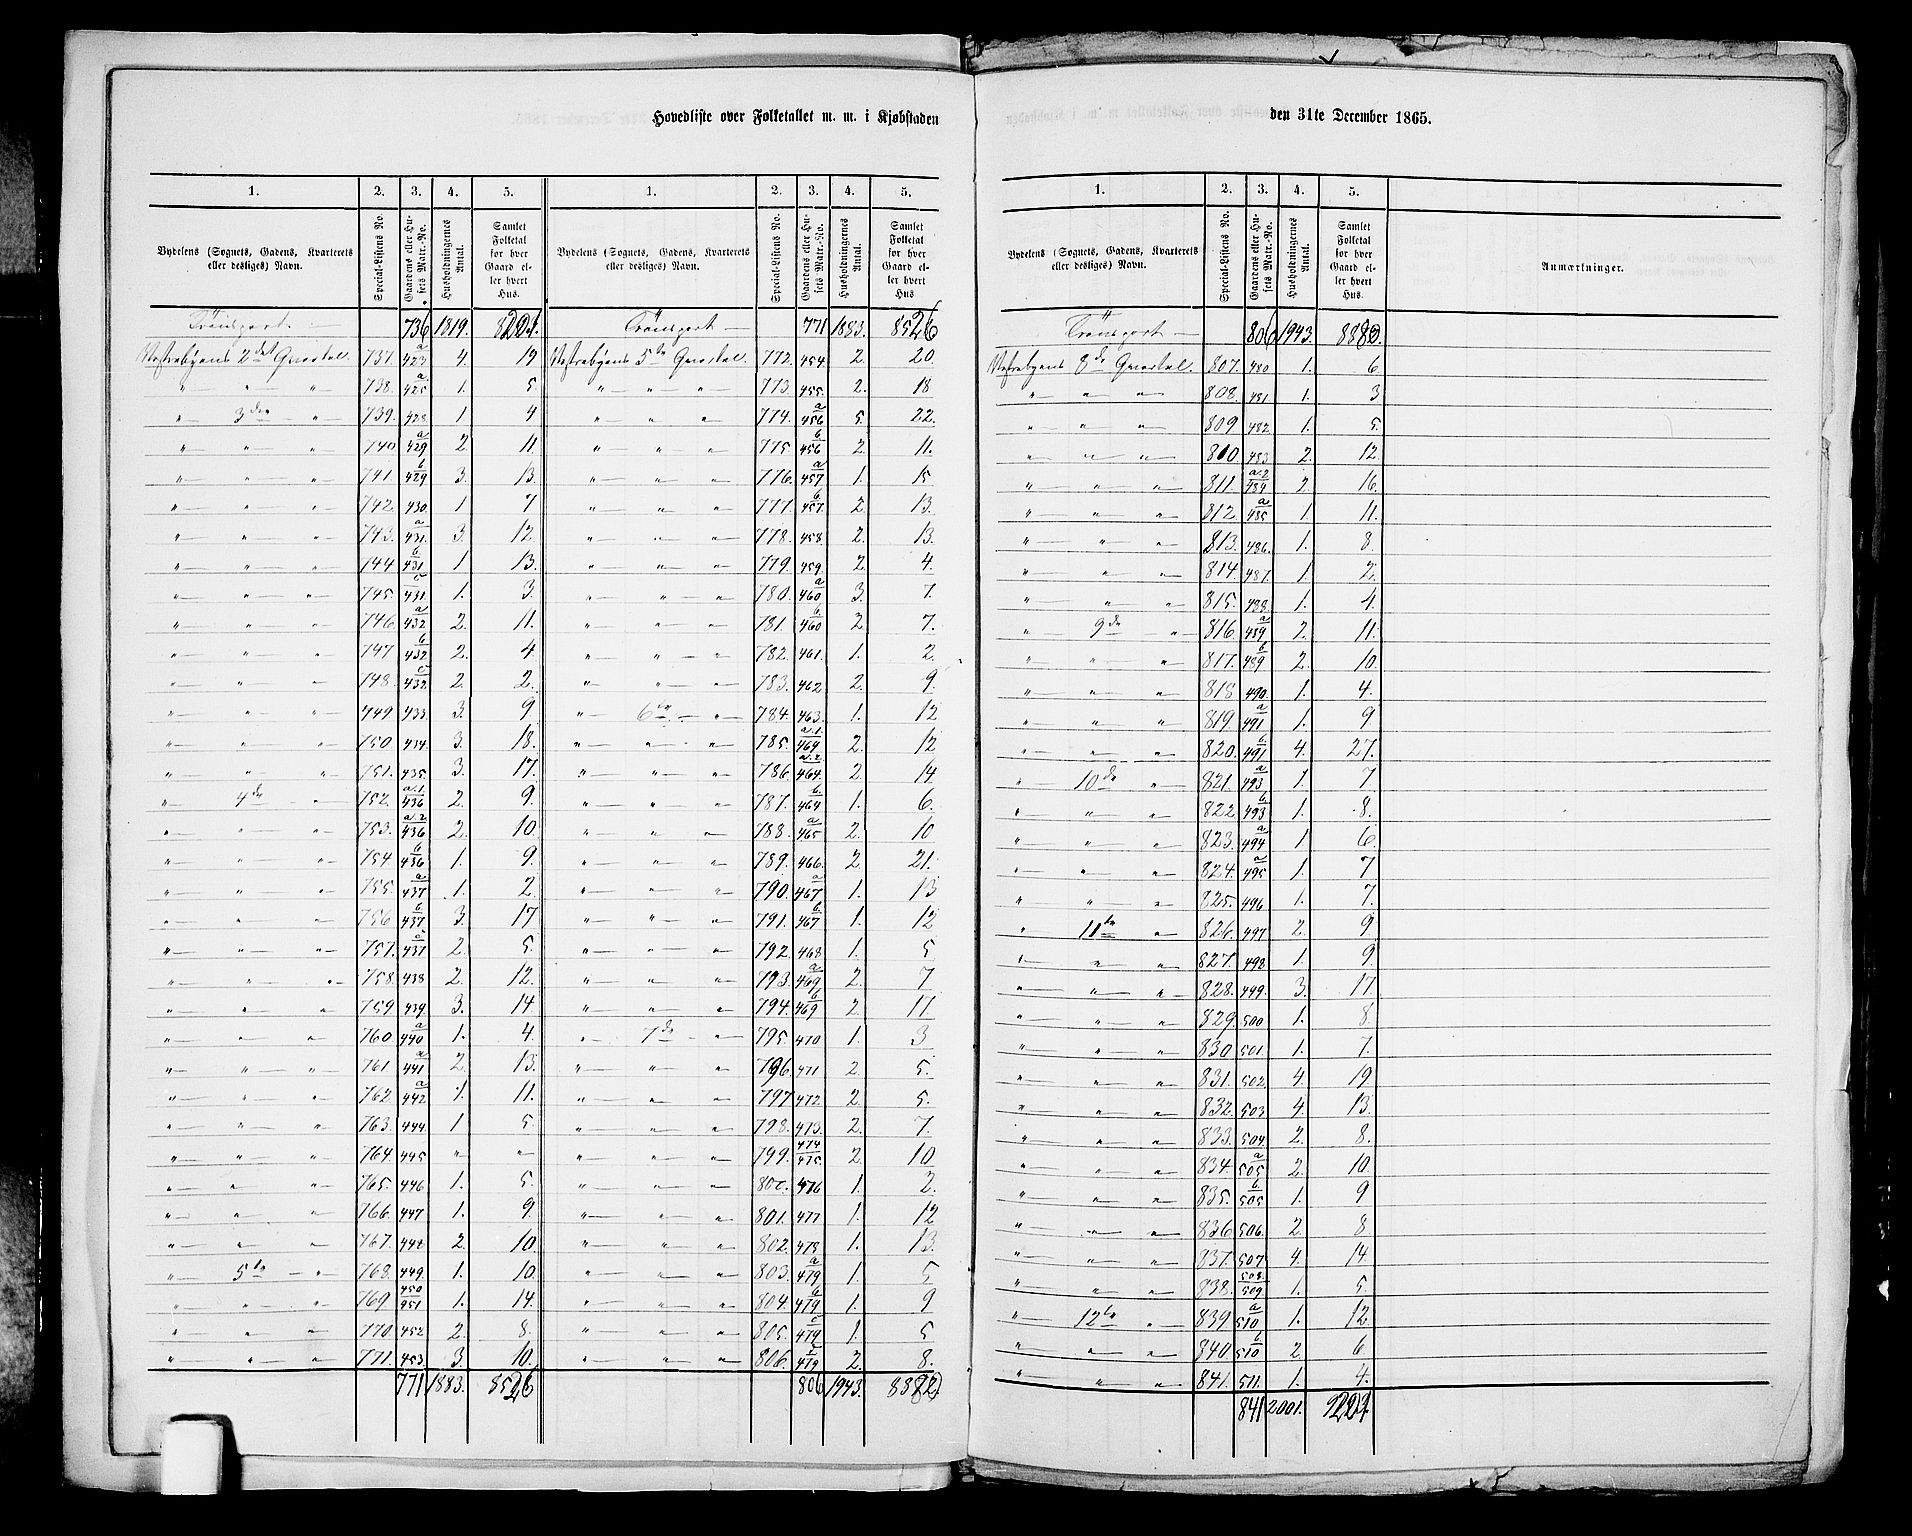 Hovedliste over Folketallet m. m. i Kjøbstaden den 31te December 1865.
1. 2. 3. 4. 5. 1. 2. 3. 4. 5.
Bydelens (Sognets, Gadens, Kvarterets eller desliges) Navn. Special-Listens No. Gaardens eller Husets Matr.-No. Husholdningernes Antal. Samlet Folketal for hver Gaard eller hvert Hus. Bydelens (Sognets, Gadens, Kvarterets eller desliges) Navn. Special-Listens No. Gaardens eller Husets Matr.-No. Husholdningernes Antal. Samlet Folketal for hver Gaard eller hvert Hus
Transport — 736 1819. Transport — 771 1883. 8526
737. a/423 4. 19 772. 454. 2. 20.
" " " 738. a/425 1. 5. " " " 773. 455. 2. 18
" 3die " 739. 428 1 4 " " " 774. a/456 5. 22.
" " " 740. a/429 2. 11. " " " 775. b/456 2. 11.
" " " 741. b/429 3. 13. " " " 776. a/457 1. 15
" " " 742. 430 1 7 " " " 777. b/457. 2 13.
" " " 743. a/431. 3. 12. " " " 778. 458. 2. 13.
" " " 744 b/431 1 13. " " " 779. 459. 2 4.
" " " 745. c/431 1. 3 " " " 780. a/460 3. 7.
" " " 746. a/432 2. 11. " " " 781. b/460 2 7.
" " " 747 b/432 2. 4 " " " 782. 461. 1. 2.
" " " 748. c/432 2. 2. " " " 783. 462 2. 9.
" " " 749. 433. 3. 9 " 6te " 784. 463. 1. 12
" " " 750. 434. 3. 18. " " " 785. a.1/464 2. 12
" " " 751. 435. 3. 17. " " " 786. a.2/464. 2. 14
" 4de " 752. a.1/436 2. 9. " " " 787. b/464 1. 6.
" " " 753. a.2/436 2. 10. " " " 788. a/465 2. 10
" " " 754. b/436 1. 9. " " " 789. 466. 2 21.
" " " 755. a/437 1. 2. " " " 790. a/467 1. 13
" " " 756. b/437 3. 17 " " " 791. b/467 1. 12
" " " 757. 2. 5. " " " 792. 468 1. 5
" " " 758. 438 2. 12. " " " 793. a/469 2. 7
" " " 759. 439. 3. 14 " " " 794. b/469 2 17.
" " " 760. a/440 1. 4. " 7de " 795. 470 1. 3
" " " 761 a/441 2. 13. " " " 796. 471 2. 5.
" " " 762. a/442 1. 11. " " " 797 472. 2 5.
" " " 763. 444. 1 5. " " " 798. 473. 2. 7.
" " " 764. 445 " " " " " 799. 474/475. 2. 10
" " " 765. 446 1. 5. " " " 800. 476 1. 2.
" " " 766. 447 1. 9. " " " 801. 477 1. 12
" " " 767. 2. 10. " " " 802. 478. 1. 13.
" 5te " 768. 449. 1. 10. " " " 803. a/479 1. 5
" " " 769 450/451 1. 14. " " " 804. b/479 1. 9
" " " 770. 452 2. 8. " " " 805. c/479 1. 5
" " " 771. 453. 3. 10. " " " 806. 2. 8.
771 1883. 8526 806 1943.
1. 2. 3. 4. 5.
Bydelens (Sognets, Gadens, Kvarterets eller desliges) Navn. Special-Listens No. Gaardens eller Husets Matr.-No. Husholdningernes Antal. Samlet Folketal for hver Gaard eller hvert Hus. Anmærkninger.
Transport — 806 1943.
807. 480 1. 6
" " " 808. 481 1. 3
" " " 809 482 1. 5.
" " " 810. 483 2. 12
" " " 811. a.2/484 2. 16.
" " " 812. a/485 1. 11.
" " " 813. 486. 1. 8.
" " " 814. 487. 1. 2.
" " " 815. 488. 1. 4.
" 9de " 816. a/489 2. 11.
" " " 817. b/489 2. 10.
" " " 818 490. 1. 4.
" " " 819. a/491 1. 9
" " " 820. b/491 4. 27.
" 10de " 821. a/493 1. 7.
" " " 822 b/493 1. 8.
" " " 823. a/494 1. 6.
" " " 824. a/495 1. 7
" " " 825. 496 1. 7.
" 11te " 826. 497 2. 9
" " " 827. 498 1. 9.
" " " 828. 499. 3. 17.
" " " 829. 500 1. 8.
" " " 830 501. 1. 7.
" " " 831. 502. 4. 19
" " " 832. 503 4. 13.
" " " 833. 504. 2. 8.
" " " 834. a/505 2. 10.
" " " 835. b/505 1. 9
" " " 836 506. 2. 8
" " " 837. 507 4. 14
" " " 838. 508/509 1. 5
" 12te " 839. a/510 1. 12.
" " " 840. b/510 2. 6
" " " 841. 511. 1. 4.
841 2001.